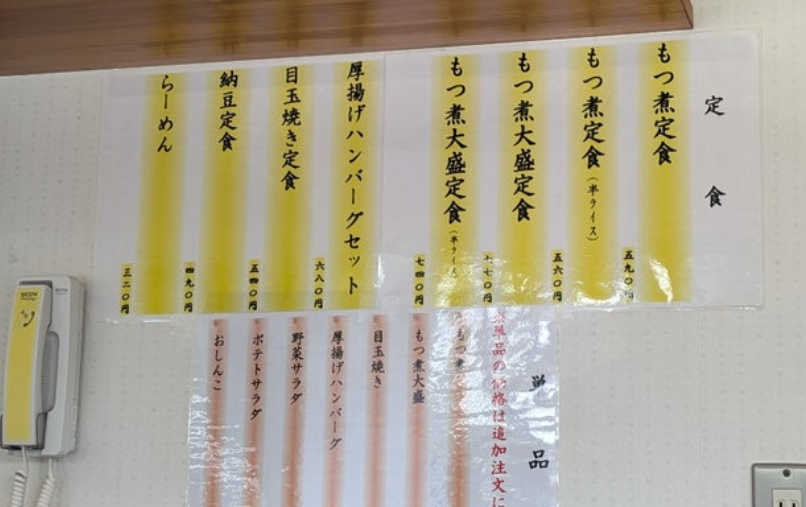 定食
もつ煮定食
五九〇円
もつ煮定食(半ライス)
五六〇円
もつ煮大盛定食
七七〇円
もつ煮大盛定食(半ライス)
七四〇円
厚揚げハンバーグセット
六八〇円
目玉焼き定食
五四〇円
納豆定食
四九〇円
らーめん
三二〇円
単品
単品の価格は追加注文に
もつ煮
もつ煮大盛
目玉焼き
厚揚げハンバーグ
野菜サラダ
ポテトサラダ
おしんこ